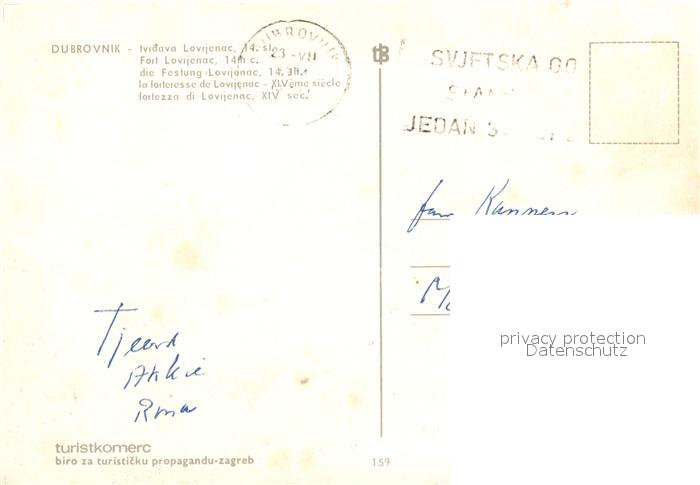 DUBROVNIK - tvrđava Lovrjenac, 14. st.
Fort Lovrjenac, 14th c.
die Festung Lovrjenac, 14. Jh.
la forteresse de Lovrjenac - XIVème siècle
fortezza di Lovrijenac, XIV sec.
DUBROVNIK
23-VII
tb
SVJETSKA GO
JEDAN S
Fam Kannen
Tjeerd
Akkie
Rina
privacy protection
Datenschutz
turistkomerc
biro za turističku propagandu-zagreb
159